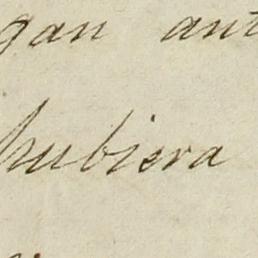 gan ant
hubiera